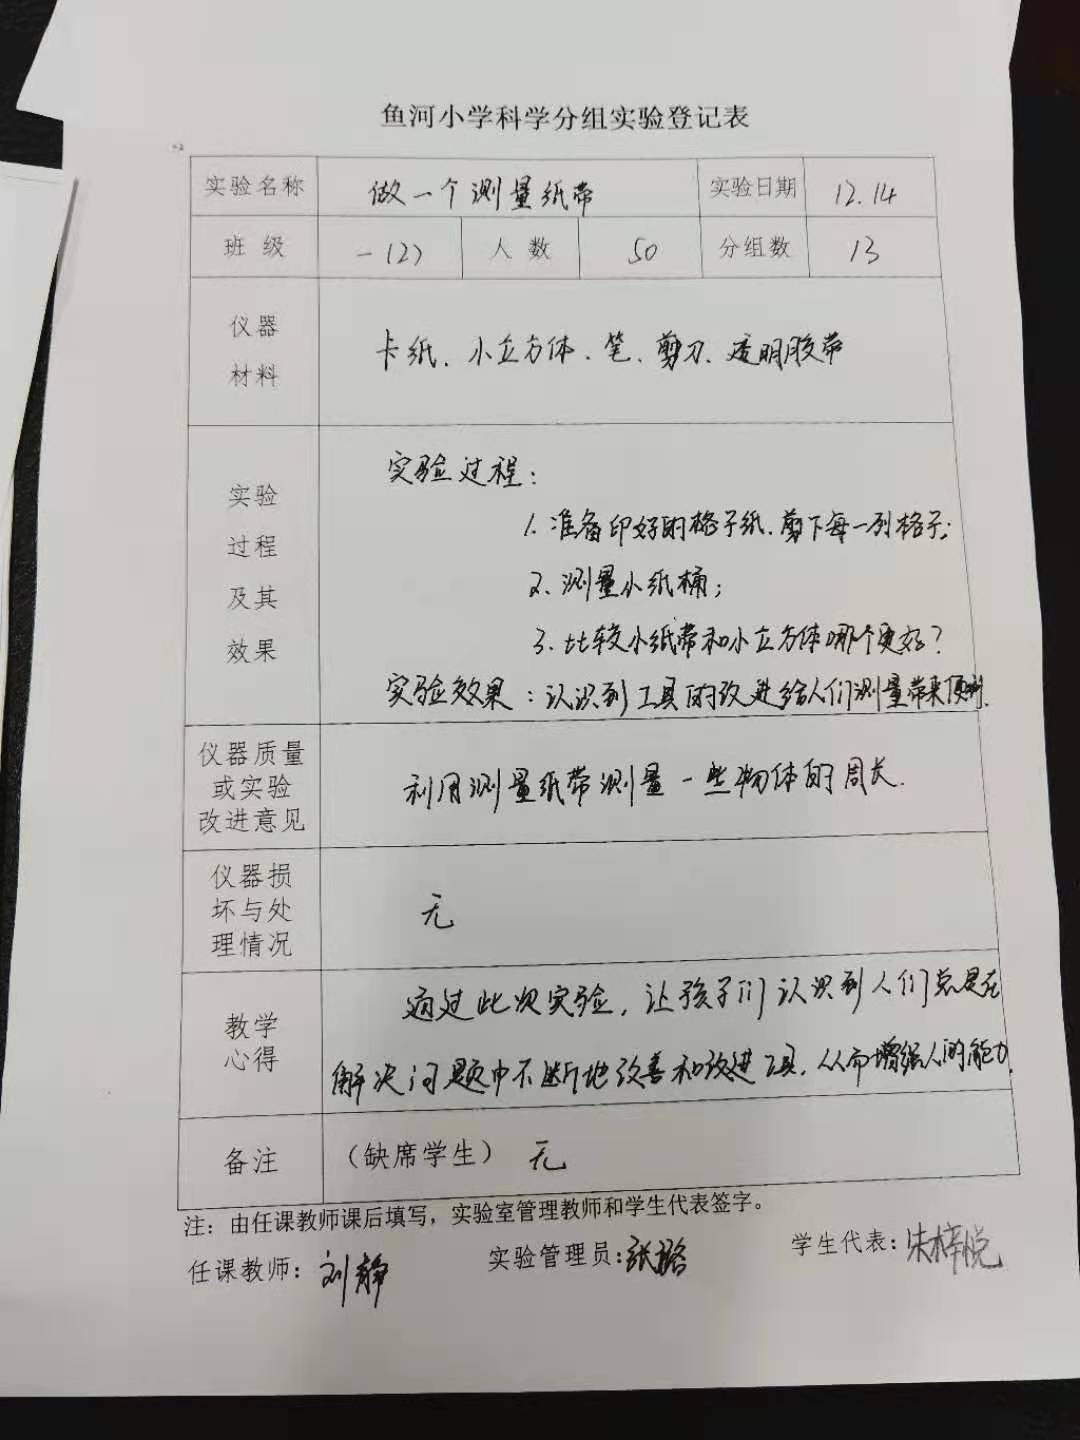 鱼河小学科学分组实验登记表
实验名称 做一个测量纸带 实验日期 12.14
班级 一(2) 人数 50 分组数 13
仪器
材料
卡纸、小立方体、笔、剪刀、透明胶带
实验
过程
及其
效果
实验过程：
1. 准备印好的格子纸、剪下每一列格子；
2、测量小纸桶；
3、比较小纸带和小立方体哪个更好？
实验效果：认识到工具的改进给人们测量带来便利.
仪器质量
或实验
改进意见
利用测量纸带测量一些物体的周长.
仪器损
坏与处
理情况
无
教学
心得
通过此次实验，让孩子们认识到人们总是在
解决问题中不断地改善和改进工具，从而增强人的能力.
备注 （缺席学生） 无
注：由任课教师课后填写，实验室管理教师和学生代表签字。
任课教师：刘静 实验管理员：张璐 学生代表：朱梓悦